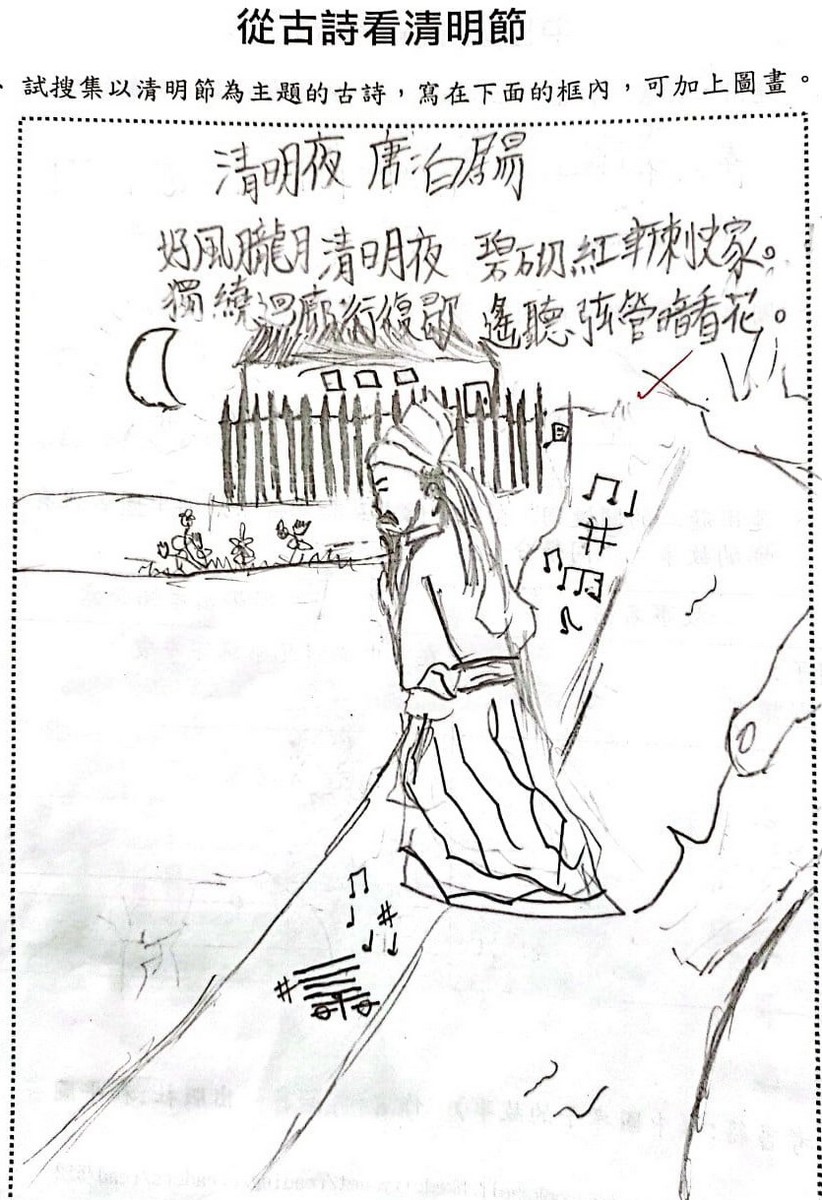 從古詩看清明節
、試搜集以清明節為主題的古詩，寫在下面的框內，可加上圖畫。
清明夜 唐白居易
好風朧月清明夜 碧砌紅軒刺史家。
獨繞迴廊行復歇 遙聽弦管暗看花。